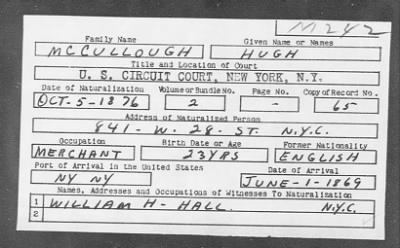 M242
Family Name Given Name or Names
MCCULLOUGH HUGH
Title and Location of Court
U. S. CIRCUIT COURT, NEW YORK, N.Y.
Date of Naturalization Volume or Bundle No. Page No. Copy of Record No.
OCT-5-1876 2 - 65
Address of Naturalized Person
841-W. 28-ST. N.Y.C.
Occupation Birth Date or Age Former Nationality
MERCHANT 23YRS ENGLISH
Port of Arrival in the United States Date of Arrival
NY NY JUNE-1-1869
Names, Addresses and Occupations of Witnesses To Naturalization
1 WILLIAM H- HALL N.Y.C.
2